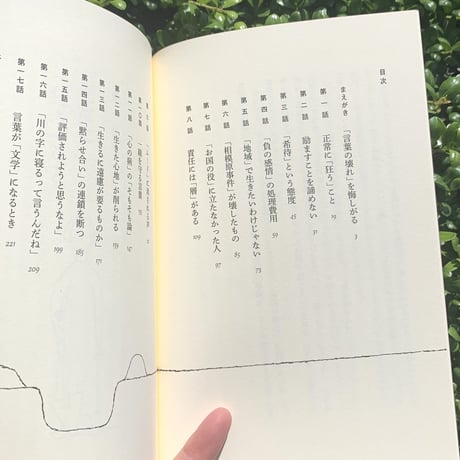 目次
まえがき 「言葉の壊れ」を悔しがる 3
第一話 正常に「狂う」こと 19
第二話 励ますことを諦めない 31
第三話 「希待」という態度 45
第四話 「負の感情」の処理費用 59
第五話 「地域」で生きたいわけじゃない 73
第六話 「相模原事件」が壊したもの 85
第七話 「お国の役」に立たなかった人 97
第八話 責任には「層」がある 109
第一一話 「心の病」の「そもそも論」 147
第一二話 「生きた心地」が削られる 159
第一三話 「生きるに遠慮が要るものか」 171
第一四話 「黙らせ合い」の連鎖を断つ 185
第一五話 「評価されようと思うなよ」 199
第一六話 「川の字に寝るって言うんだね」 209
第一七話 言葉が「文学」になるとき 221